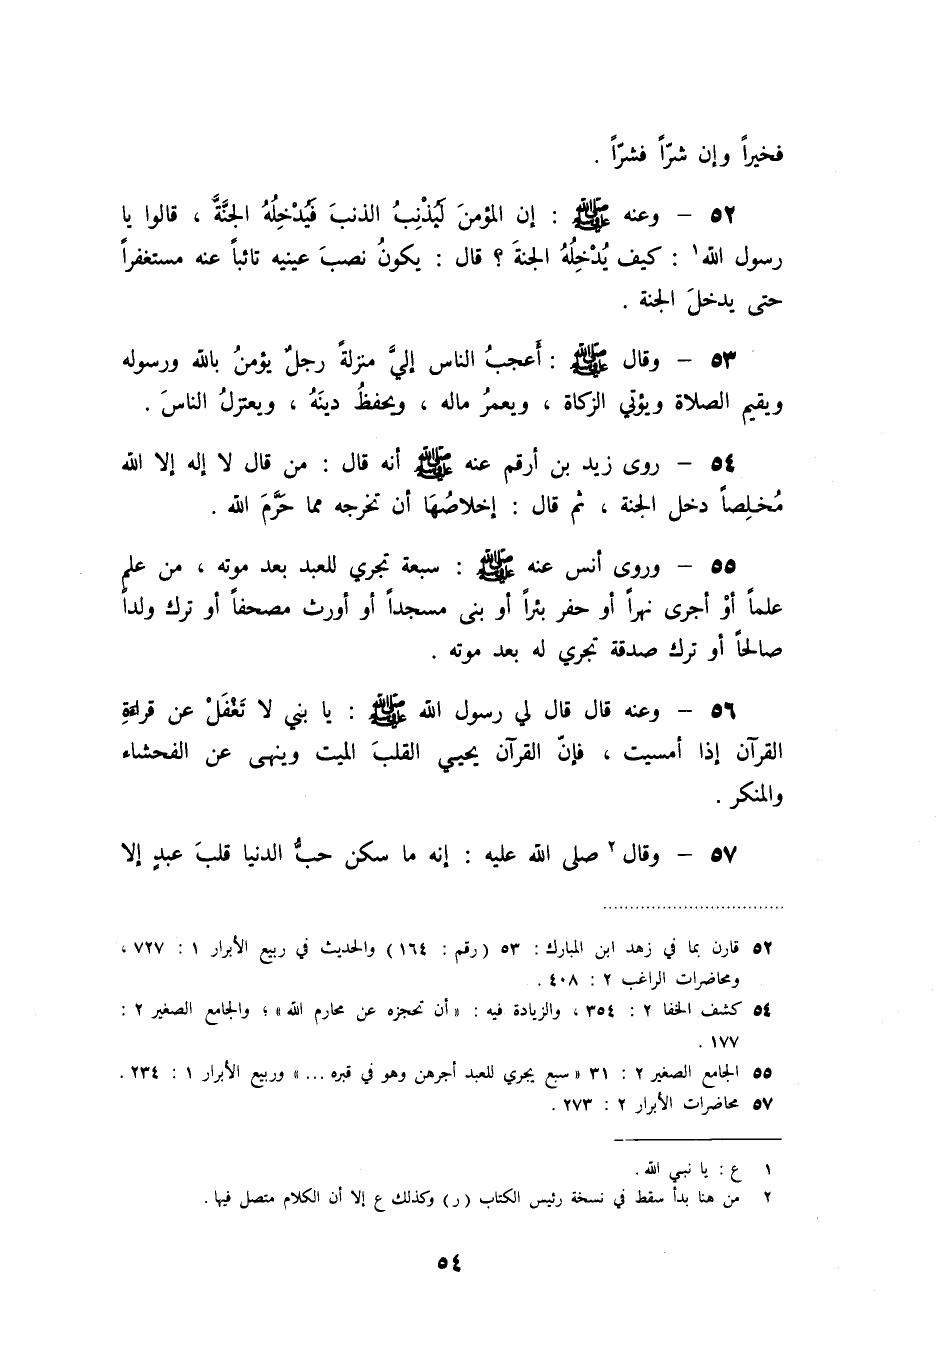 فخيراً وإن شرّاً فشرّاً .
٥٢ – وعنه ﷺ : إن المؤمنَ لَيُذْنِبُ الذنبَ فَيُدْخِلُهُ الجنَّةَ ، قالوا يا
رسول الله١ : كيف يُدْخِلُهُ الجنةَ ؟ قال : يكونُ نصبَ عينيه تائباً عنه مستغفراً
حتى يدخلَ الجنة .
٥٣ – وقال ﷺ : أَعجبُ الناس إليَّ منزلةً رجلٌ يؤمنُ بالله ورسوله
ويقيم الصلاة ويؤتي الزكاة ، ويعمرُ ماله ، ويحفظُ دينَهُ ، ويعتزلُ الناسَ .
٥٤ – روى زيد بن أرقم عنه ﷺ أنه قال : من قال لا إله إلا الله
مُخلِصاً دخل الجنة ، ثم قال : إخلاصُهَا أن تخرجه مما حَرَّمَ الله .
٥٥ – وروى أنس عنه ﷺ : سبعة تجري للعبد بعد موته ، من علم
علماً أوْ أجرى نهراً أو حفر بئراً أو بنى مسجداً أو أورث مصحفاً أو ترك ولداً
صالحاً أو ترك صدقة تجري له بعد موته .
٥٦ – وعنه قال قال لي رسول الله ﷺ : يا بني لا تَغْفَلْ عن قراءةِ
القرآن إذا أمسيت ، فإنّ القرآن يحيي القلبَ الميت وينهى عن الفحشاء
والمنكر .
٥٧ – وقال٢ صلى الله عليه : إنه ما سكن حبُّ الدنيا قلبَ عبدٍ إلا
٥٢ قارن بما في زهد ابن المبارك : ٥٣ ( رقم : ١٦٤ ) والحديث في ربيع الأبرار ١ : ٧٢٧ ،
ومحاضرات الراغب ٢ : ٤٠٨ .
٥٤ كشف الخفا ٢ : ٣٥٤ ، والزيادة فيه : « أن تحجزه عن محارم الله » ؛ والجامع الصغير ٢ :
١٧٧ .
٥٥ الجامع الصغير ٢ : ٣١ « سبع يجري للعبد أجرهن وهو في قبره ... » وربيع الأبرار ١ : ٢٣٤ .
٥٧ محاضرات الأبرار ٢ : ٢٧٣ .
١ ع : يا نبي الله .
٢ من هنا بدأ سقط في نسخة رئيس الكتاب ( ر ) وكذلك ع إلا أن الكلام متصل فيها .
٥٤